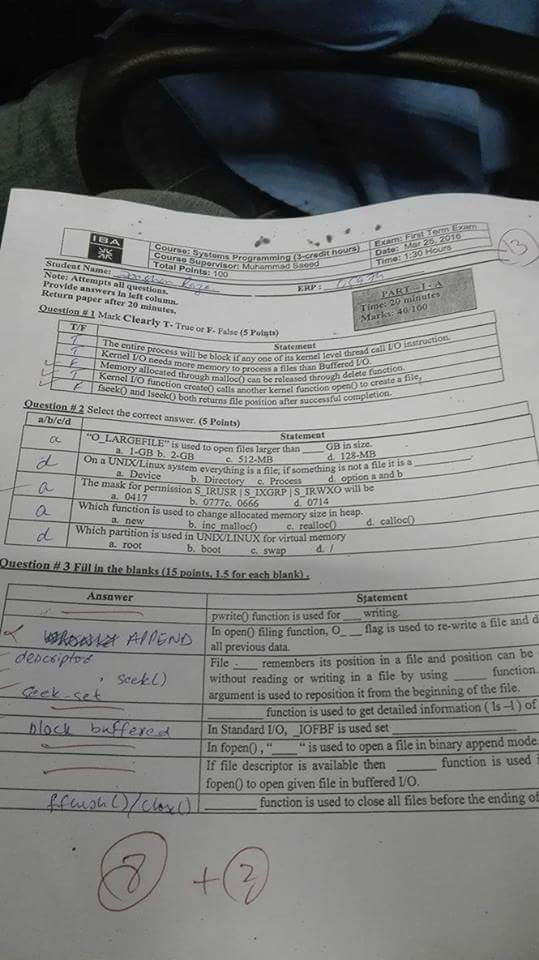 IBA
Course: Systems Programming (3-credit hours)
Exam: First Term Exam
Course Supervisor: Muhammad Saeed
Date: Mar 25, 2016
Total Points: 100
Time: 1:30 Hours
13
Student Name:
ERP:
Note: Attempts all questions.
Provide answers in left column.
Return paper after 20 minutes.
PART-I-A
Time: 20 minutes
Marks: 40/100
Question # 1 Mark Clearly T- True or F- False (5 Points)
T/F Statement
T The entire process will be block if any one of its kernel level thread call I/O instruction.
T Kernel I/O needs more memory to process a files than Buffered I/O.
F Memory allocated through malloc() can be released through delete function.
T Kernel I/O function create() calls another kernel function open() to create a file,
F fseek() and lseek() both returns file position after successful completion.
Question # 2 Select the correct answer. (5 Points)
a/b/c/d Statement
a "O_LARGEFILE" is used to open files larger than ____ GB in size.
a. 1-GB b. 2-GB c. 512-MB d. 128-MB
d On a UNIX/Linux system everything is a file; if something is not a file it is a ________.
a. Device b. Directory c. Process d. option a and b
a The mask for permission S_IRUSR | S_IXGRP | S_IRWXO will be
a. 0417 b. 0777c. 0666 d. 0714
a Which function is used to change allocated memory size in heap.
a. new b. inc_malloc() c. realloc() d. calloc()
d Which partition is used in UNIX/LINUX for virtual memory
a. root b. boot c. swap d. /
Question # 3 Fill in the blanks (15 points, 1.5 for each blank) .
Answer Statement
pwrite() function is used for ____ writing.
APPEND In open() filing function, O_ __ flag is used to re-write a file and d
all previous data.
descriptor File ____ remembers its position in a file and position can be
, seek() without reading or writing in a file by using _____ function.
seek-set argument is used to reposition it from the beginning of the file.
________ function is used to get detailed information ( ls –l ) of
block buffered In Standard I/O, _IOFBF is used set ________
In fopen() , "____" is used to open a file in binary append mode.
If file descriptor is available then ______ function is used
fopen() to open given file in buffered I/O.
fflush()/close() ________ function is used to close all files before the ending of
8 + 3